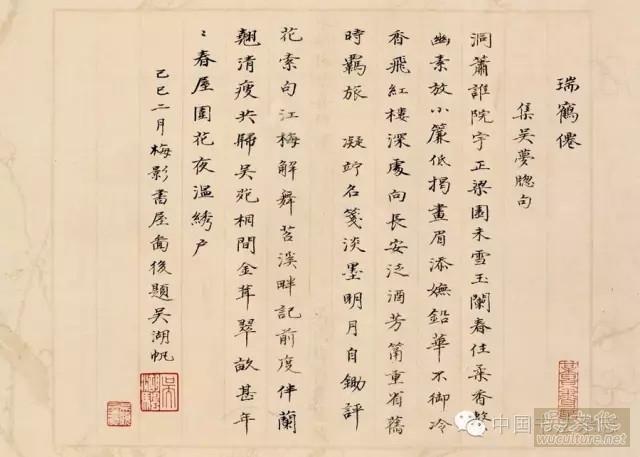 瑞鶴僊
集吴夢牕句
洞蕭誰院宇正梁園未雪玉闌春住柔香繋
幽素放小簾低揭畫眉添嫵鉛華不御冷
香飛紅樓深處向長安泛酒芳筩重省舊
時羈旅 凝竚名箋淡墨明月自鋤評
花索句江梅解舞苕溪畔記前度伴蘭
翹清瘦共歸吴苑桐間金茸翠畝甚年
〻春屋圍花夜溫綉户
己巳二月梅影書屋畵後題吴湖帆
中国
wuculture.net